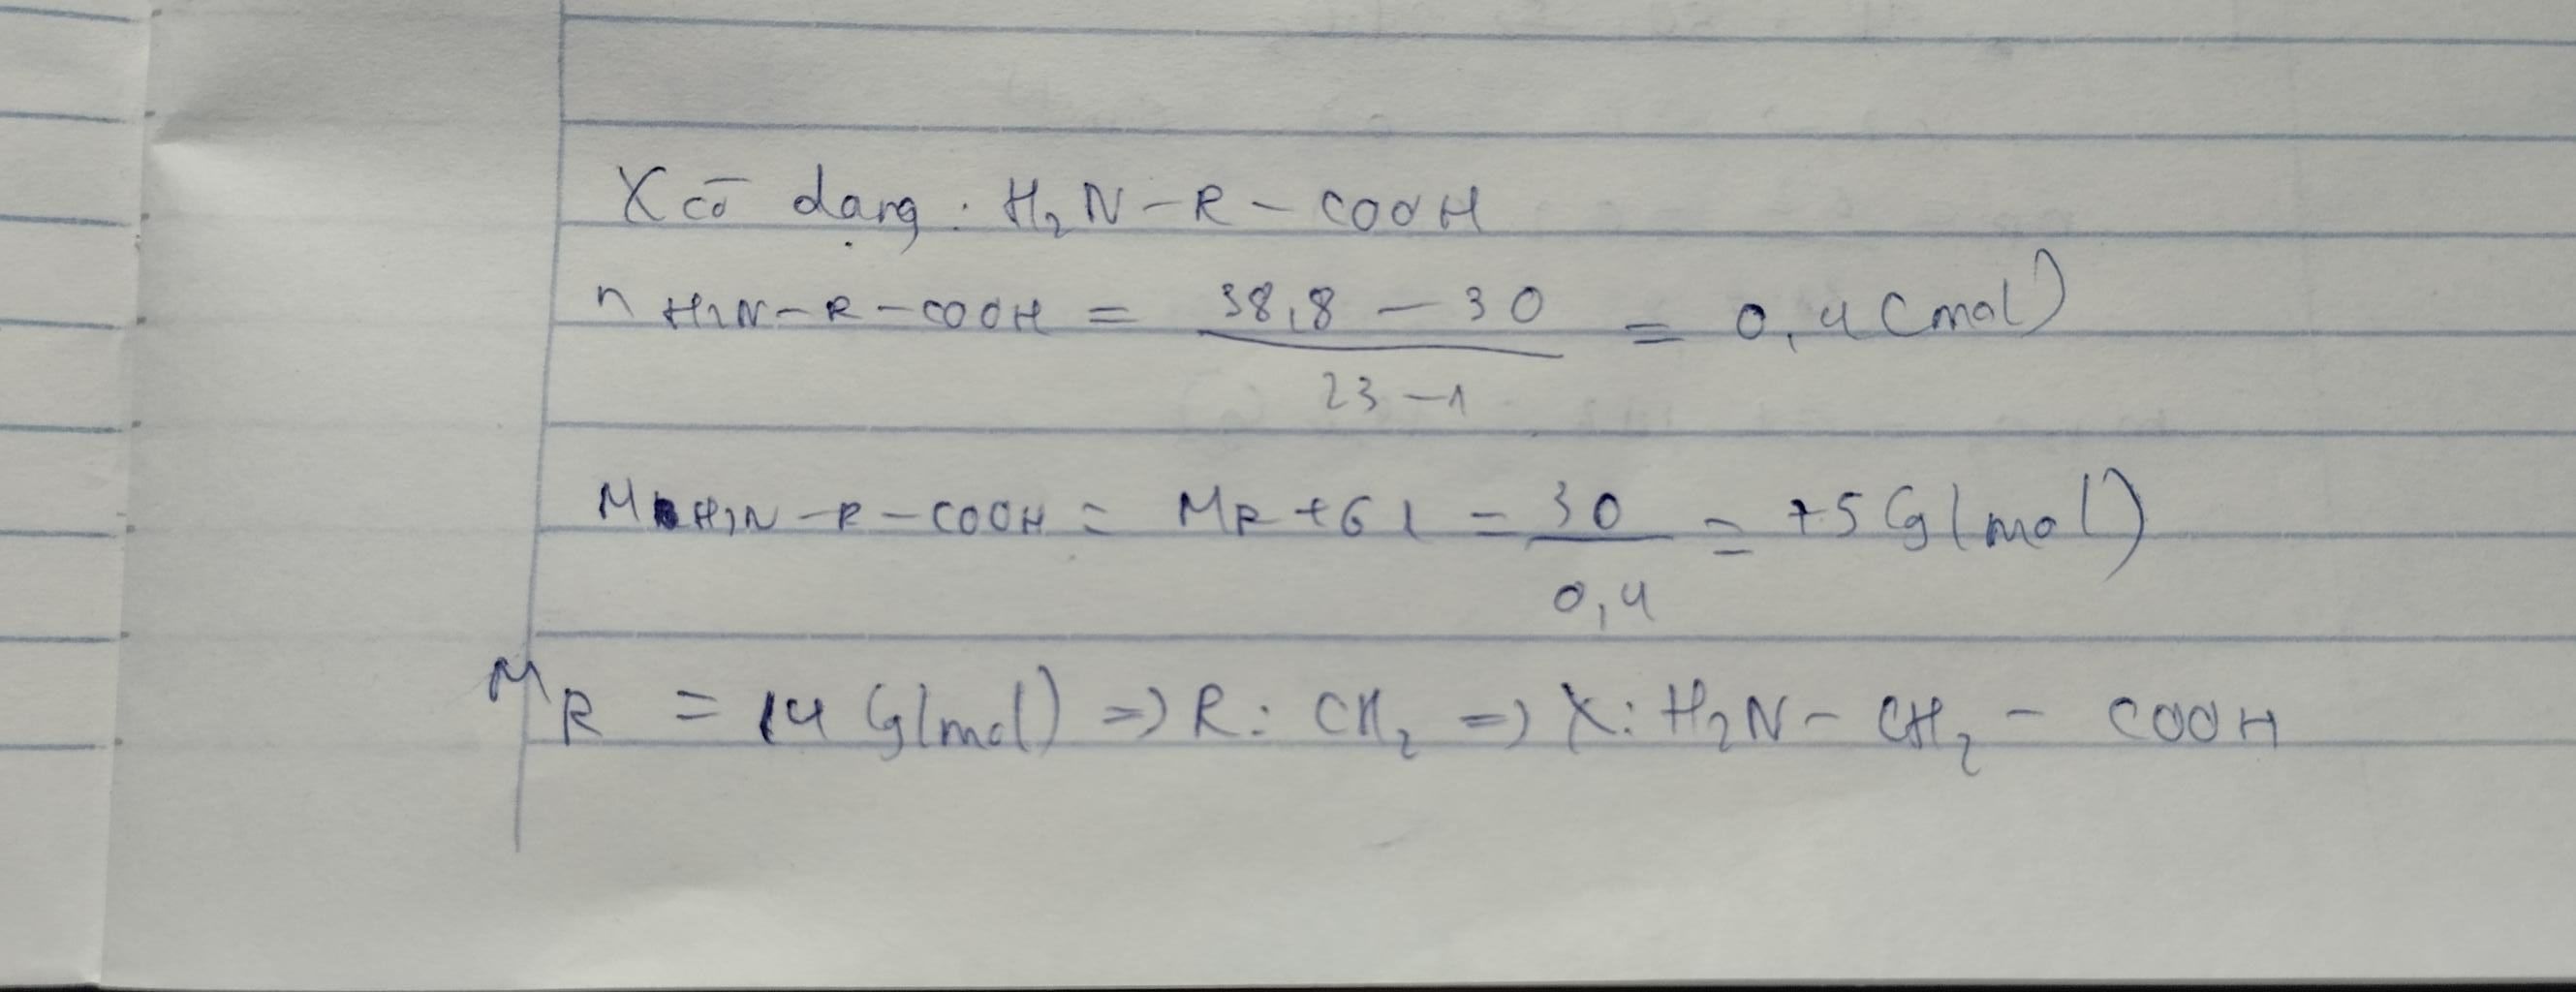 X có dạng: H₂N-R-COOH
n H₂N-R-COOH = 38,8 - 30 / 23 - 1 = 0,4 (mol)
M H₂N-R-COOH = MR + 61 = 30 / 0,4 = 75 (g/mol)
MR = 14 (g/mol) => R: CH₂ => X: H₂N - CH₂ - COOH